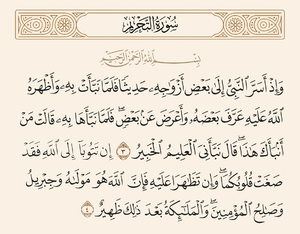 سُورَةُ التَّحْرِيمِ
بِسْمِ اللَّهِ الرَّحْمَٰنِ الرَّحِيمِ
وَإِذْ أَسَرَّ ٱلنَّبِىُّ إِلَىٰ بَعْضِ أَزْوَٰجِهِۦ حَدِيثًا فَلَمَّا نَبَّأَتْ بِهِۦ وَأَظْهَرَهُ
ٱللَّهُ عَلَيْهِ عَرَّفَ بَعْضَهُۥ وَأَعْرَضَ عَنۢ بَعْضٍ ۖ فَلَمَّا نَبَّأَهَا بِهِۦ قَالَتْ مَنْ
أَنۢبَأَكَ هَٰذَا ۖ قَالَ نَبَّأَنِىَ ٱلْعَلِيمُ ٱلْخَبِيرُ ٣ إِن تَتُوبَآ إِلَى ٱللَّهِ فَقَدْ
صَغَتْ قُلُوبُكُمَا ۖ وَإِن تَظَٰهَرَا عَلَيْهِ فَإِنَّ ٱللَّهَ هُوَ مَوْلَىٰهُ وَجِبْرِيلُ
وَصَٰلِحُ ٱلْمُؤْمِنِينَ ۖ وَٱلْمَلَٰٓئِكَةُ بَعْدَ ذَٰلِكَ ظَهِيرٌ ٤